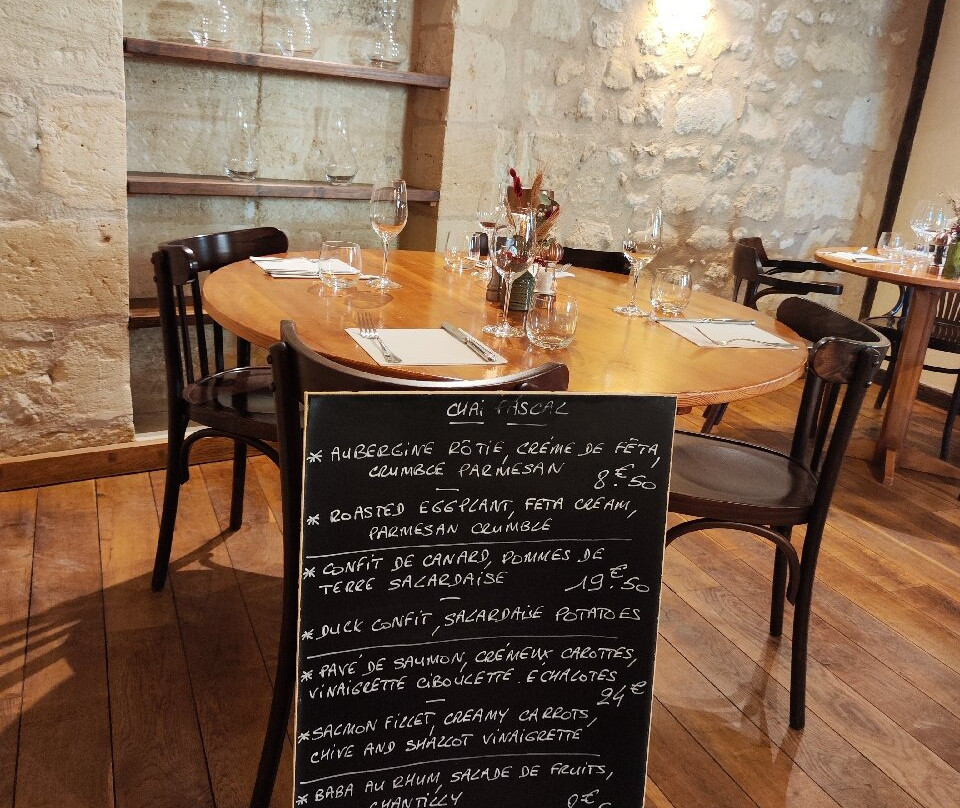 CHAI PASCAL
* AUBERGINE RÔTIE, CRÉME DE FÊTA,
CRUMBLE PARMESAN
8€.50
* ROASTED EGGPLANT, FETA CREAM,
PARMESAN CRUMBLE
* CONFIT DE CANARD, POMMES DE
TERRE SALARDAISE 19€.50
* DUCK CONFIT, SALARDAISE POTATOES
* PAVÉ DE SAUMON, CRÉMEUX CAROTTES,
VINAIGRETTE CIBOULETTE. ÉCHALOTES
24€
* SALMON FILLET, CREAMY CARROTS,
CHIVE AND SHALLOT VINAIGRETTE
* BABA AU RHUM, SALADE DE FRUITS,
CHANTILLY